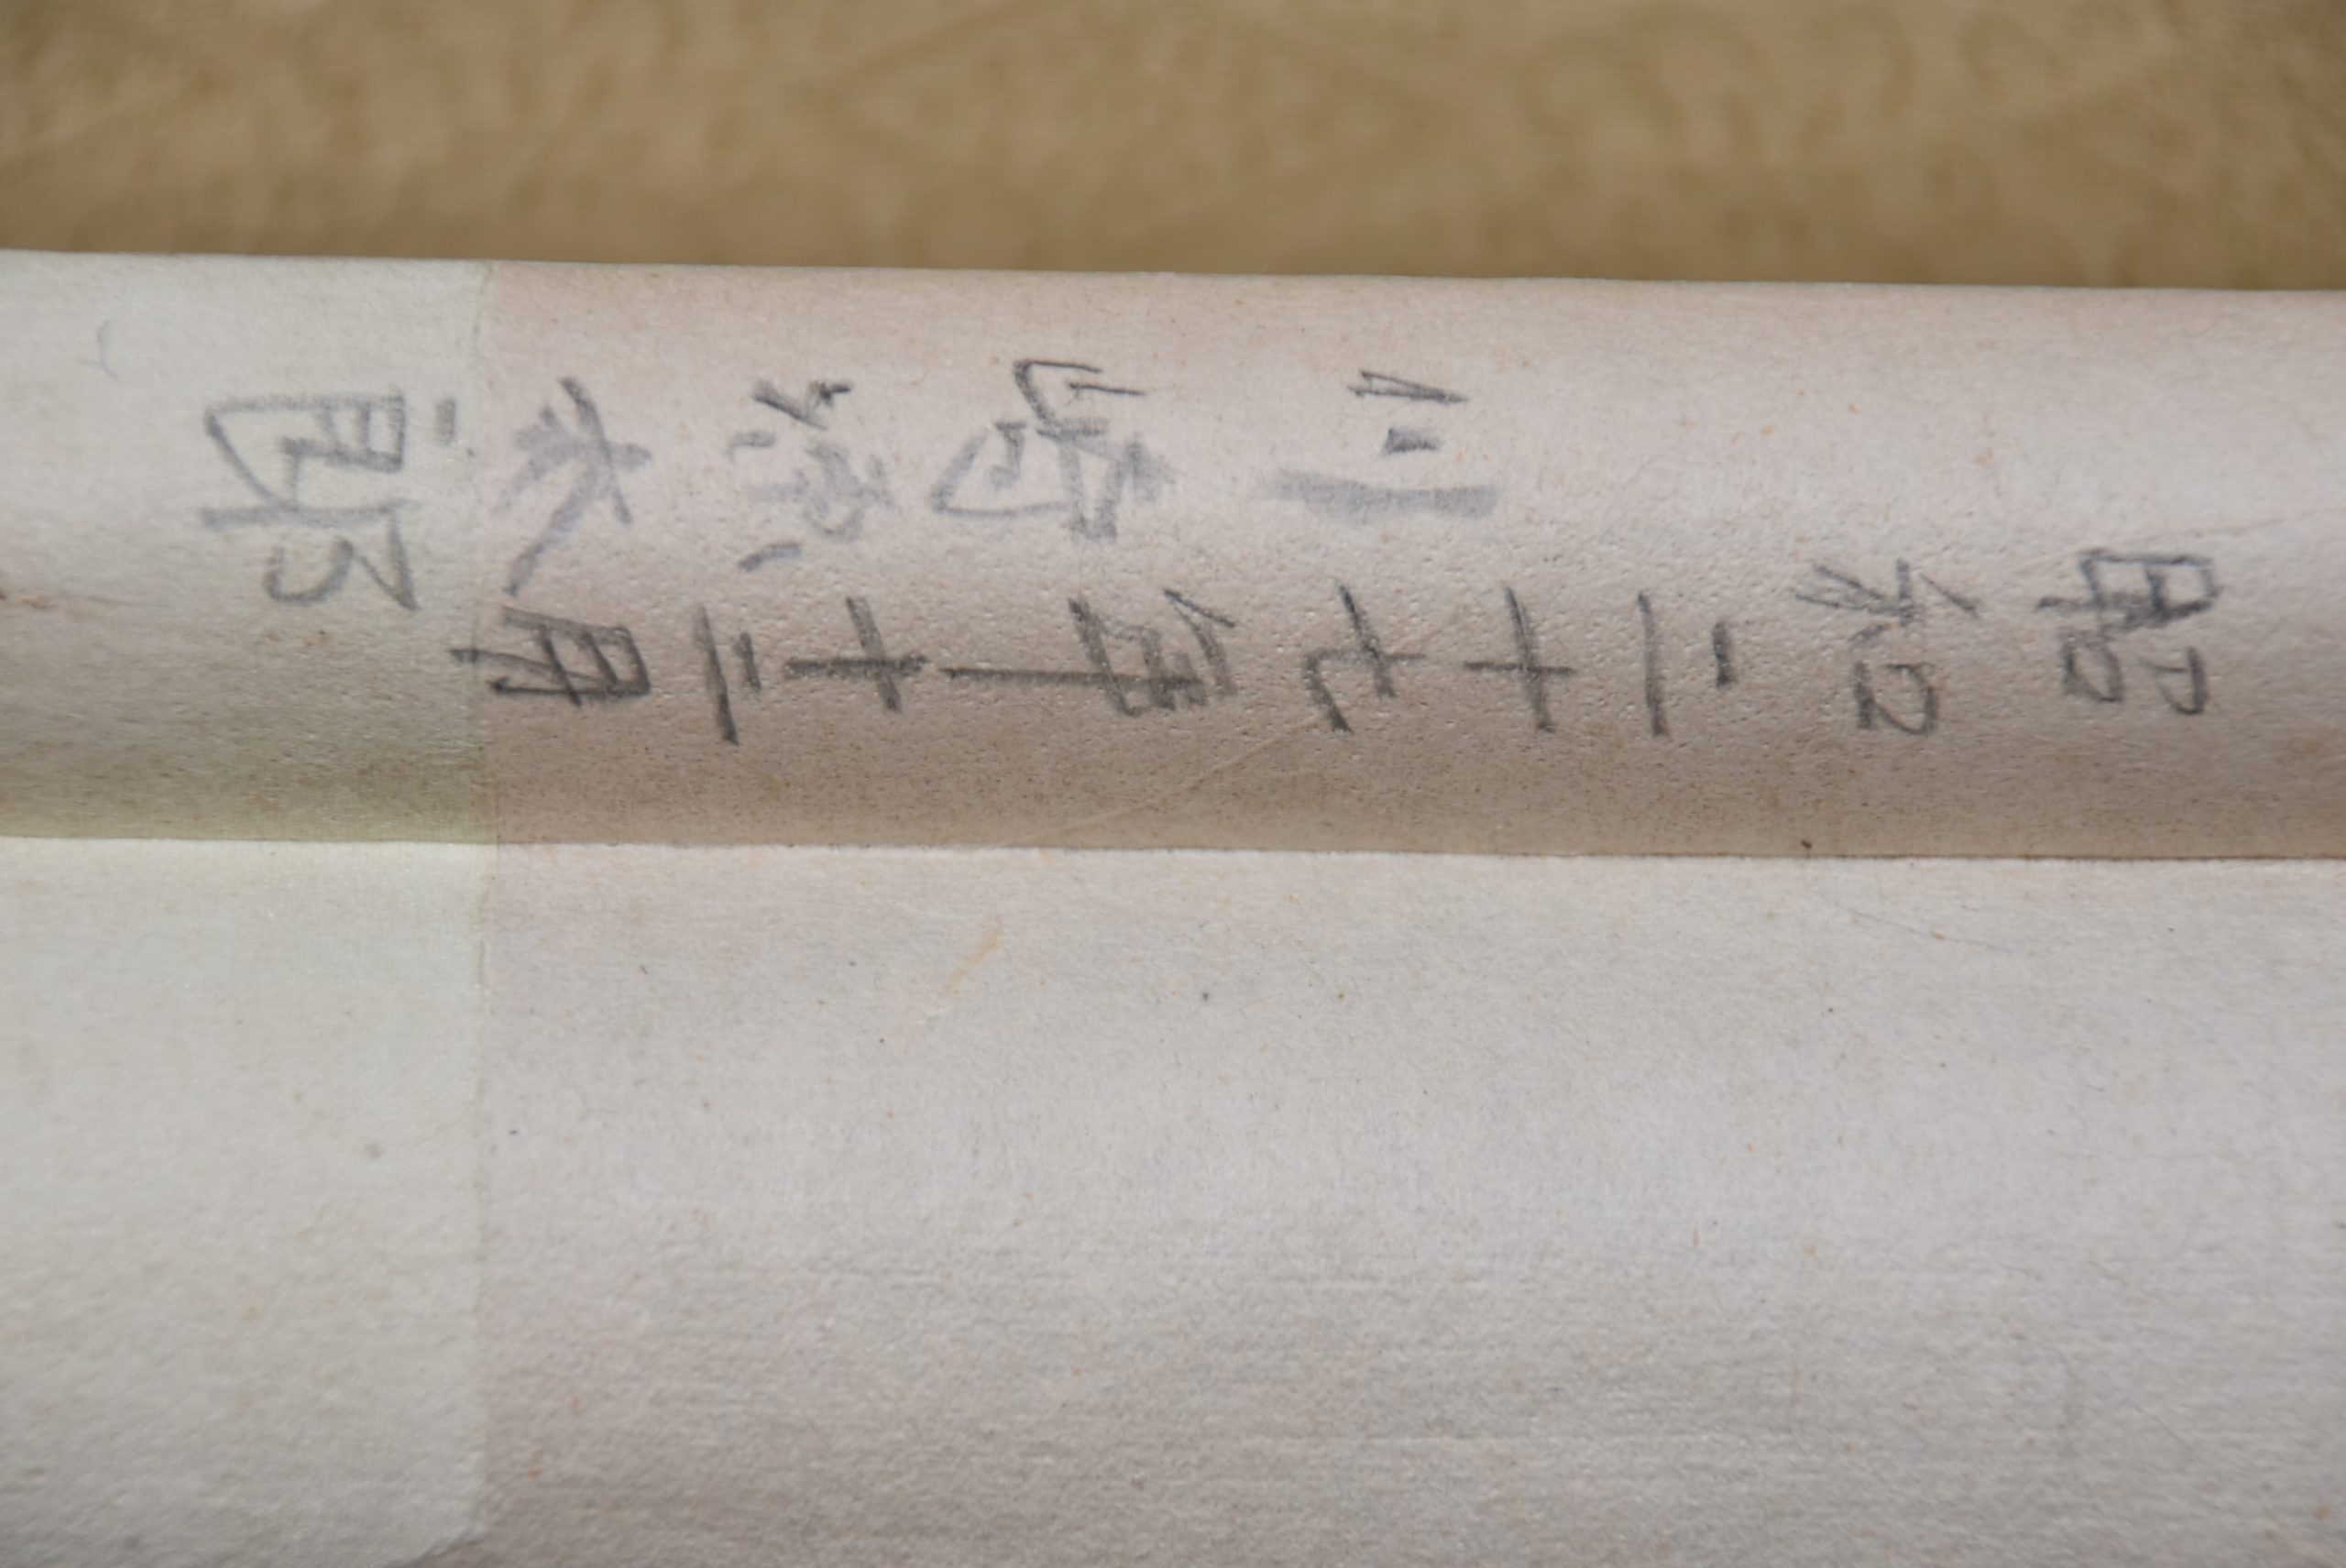 昭和二十七年十二月
川崎太郎